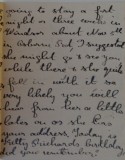 going to stay a fort
night or three weeks in
Windsor about Nov 9th
in Osborn but I suggested
she might go & see you
while there & she quite
fell in with it so
very likely you will
hear from her a little
later on as she has
your address. Today is
Betty Richards birthday
did you remember?